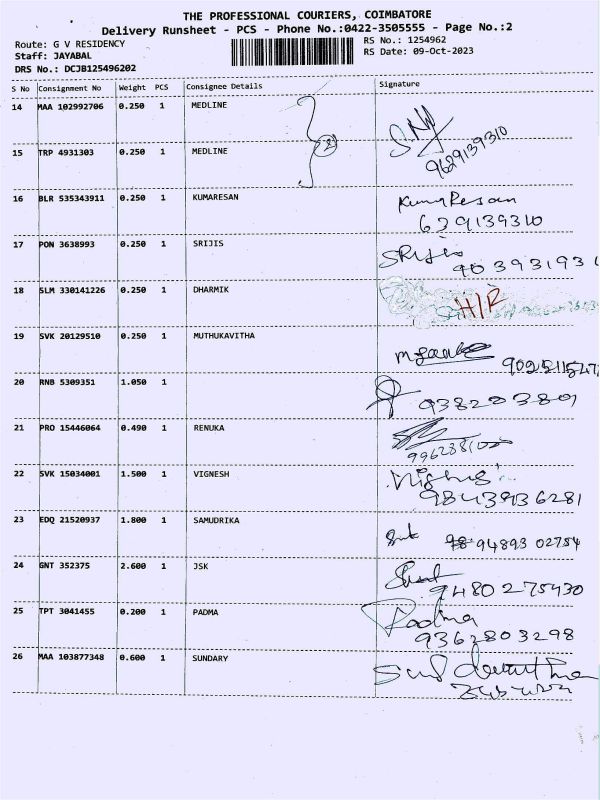 THE PROFESSIONAL COURIERS, COIMBATORE
Delivery Runsheet - PCS - Phone No.:0422-3505555 - Page No.:2
Route: G V RESIDENCY
RS No.: 1254962
Staff: JAYABAL
RS Date: 09-Oct-2023
DRS No.: DCJB125496202
S No Consignment No Weight PCS Consignee Details Signature
14 MAA 102992706 0.250 1 MEDLINE
15 TRP 4931303 0.250 1 MEDLINE
9629139310
16 BLR 535343911 0.250 1 KUMARESAN
KumaResan
629139310
17 PON 3638993 0.250 1 SRIJIS
SRijis
903931931
18 SLM 330141226 0.250 1 DHARMIK
H/R
19 SVK 20129510 0.250 1 MUTHUKAVITHA
20 RNB 5309351 1.050 1
9382203801
21 PRO 15446064 0.490 1 RENUKA
22 SVK 15034001 1.500 1 VIGNESH
9843936281
23 EDQ 21520937 1.800 1 SAMUDRIKA
94893 02754
24 GNT 352375 2.600 1 JSK
9480275430
25 TPT 3041455 0.200 1 PADMA
Padma
9362803298
26 MAA 103877348 0.600 1 SUNDARY